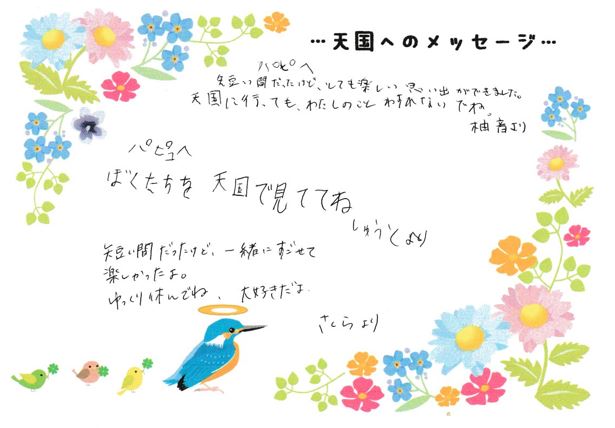 …天国へのメッセージ…
パピへ
短い間だったけど、とても楽しい思い出ができました。
天国に行っても、わたしのことわすれないでね。
柚音より
パピへ
ぼくたちを天国で見ててね
しゅうとより
短い間だったけど、一緒にすごせて
楽しかったよ。
ゆっくり休んでね、大好きだよ
さくらより